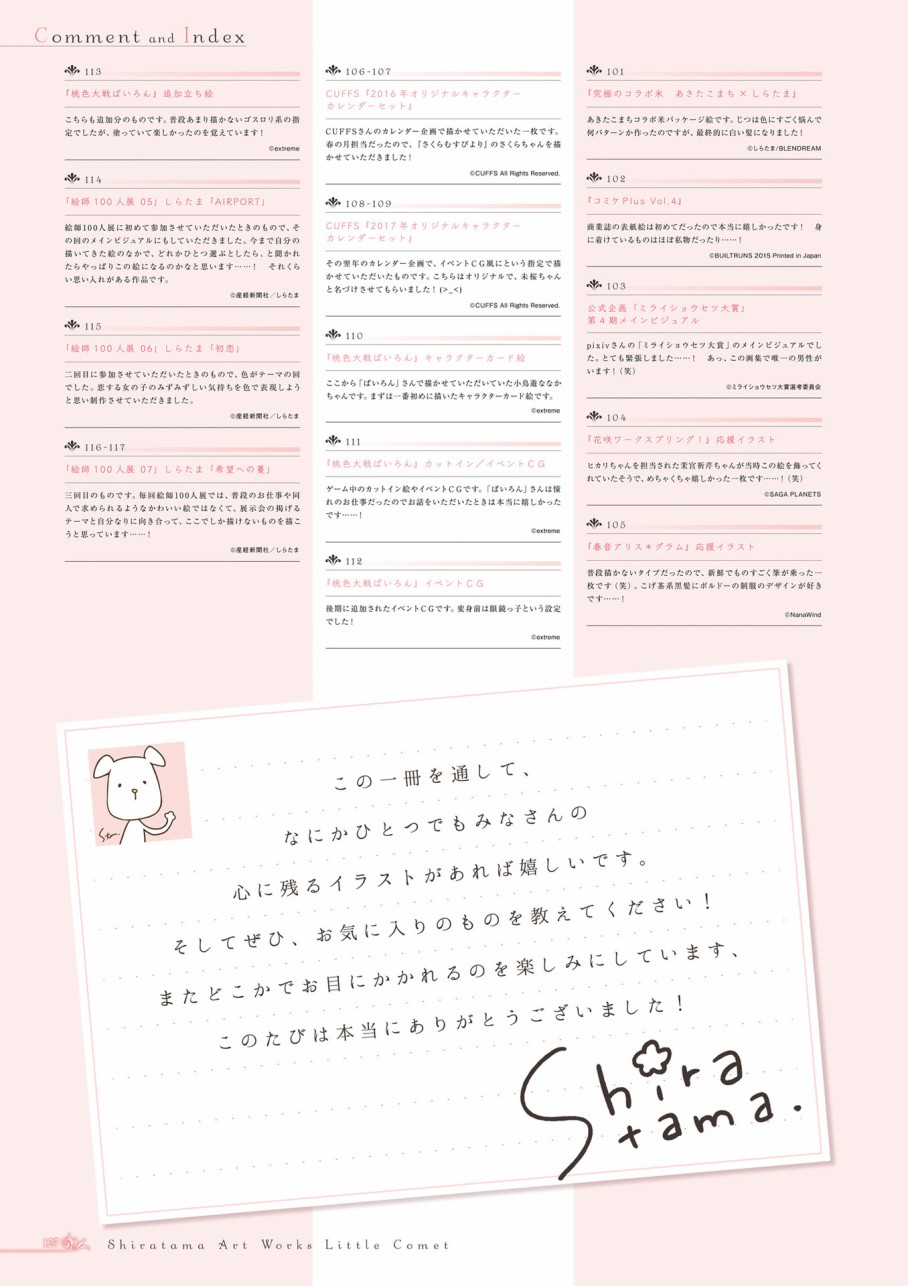 Comment and Index
101
『究極のコラボ米　あきたこまち×しらたま』
あきたこまちコラボ米パッケージ絵です。じつは色にすごく悩んで
何パターンか作ったのですが、最終的に白い髪になりました！
©しらたま/BLENDREAM
102
『コミケPlus Vol.4』
商業誌の表紙絵は初めてだったので本当に嬉しかったです！　身
に着けているものはほぼ私物だったり……！
©BUILTRUNS 2015 Printed in Japan
103
公式企画「ミライショウセツ大賞」
第4期メインビジュアル
pixivさんの「ミライショウセツ大賞」のメインビジュアルでし
た。とても緊張しました……！　あっ、この画集で唯一の男性が
います！（笑）
©ミライショウセツ大賞選考委員会
104
『花咲ワークスプリング！』応援イラスト
ヒカリちゃんを担当された茉宮祈芹ちゃんが当時この絵を飾ってく
れていたそうで、めちゃくちゃ嬉しかった一枚です……！（笑）
©SAGA PLANETS
105
『春音アリス＊グラム』応援イラスト
普段描かないタイプだったので、新鮮でものすごく筆が乗った一
枚です（笑）。こげ茶系黒髪にボルドーの制服のデザインが好き
です……！
©NanaWind
106-107
CUFFS『2016年オリジナルキャラクター
カレンダーセット』
CUFFSさんのカレンダー企画で描かせていただいた一枚です。
春の月担当だったので、『さくらむすびより』のさくらちゃんを描
かせていただきました！
©CUFFS All Rights Reserved.
108-109
CUFFS『2017年オリジナルキャラクター
カレンダーセット』
その翌年のカレンダー企画で、イベントCG風にという指定で描
かせていただいたものです。こちらはオリジナルで、未桜ちゃん
と名づけさせてもらいました！(>_<)
©CUFFS All Rights Reserved.
110
『桃色大戦ぱいろん』キャラクターカード絵
ここから「ぱいろん」さんで描かせていただいていた小鳥遊ななか
ちゃんです。まずは一番初めに描いたキャラクターカード絵です。
©extreme
111
『桃色大戦ぱいろん』カットイン／イベントCG
ゲーム中のカットイン絵やイベントCGです。「ぱいろん」さんは憧
れのお仕事だったのでお話をいただいたときは本当に嬉しかった
です……！
©extreme
112
『桃色大戦ぱいろん』イベントCG
後期に追加されたイベントCGです。変身前は眼鏡っ子という設定
でした！
©extreme
113
『桃色大戦ぱいろん』追加立ち絵
こちらも追加分のものです。普段あまり描かないゴスロリ系の指
定でしたが、塗っていて楽しかったのを覚えています！
©extreme
114
「絵師100人展 05」しらたま「AIRPORT」
絵師100人展に初めて参加させていただいたときのもので、そ
の回のメインビジュアルにもしていただきました。今まで自分の
描いてきた絵のなかで、どれかひとつ選ぶとしたら、と聞かれ
たらやっぱりこの絵になるのかなと思います……！　それくら
い思い入れがある作品です。
©産経新聞社／しらたま
115
「絵師100人展 06」しらたま「初恋」
二回目に参加させていただいたときのもので、色がテーマの回
でした。恋する女の子のみずみずしい気持ちを色で表現しよう
と思い制作させていただきました。
©産経新聞社／しらたま
116-117
「絵師100人展 07」しらたま「希望への蔓」
三回目のものです。毎回絵師100人展では、普段のお仕事や同
人で求められるようなかわいい絵ではなくて、展示会の掲げる
テーマと自分なりに向き合って、ここでしか描けないものを描こ
うと思っています……！
©産経新聞社／しらたま
Stam.
この一冊を通して、
なにかひとつでもみなさんの
心に残るイラストがあれば嬉しいです。
そしてぜひ、お気に入りのものを教えてください！
またどこかでお目にかかれるのを楽しみにしています、
このたびは本当にありがとうございました！
Shira
tama.
127
Shiratama Art Works Little Comet